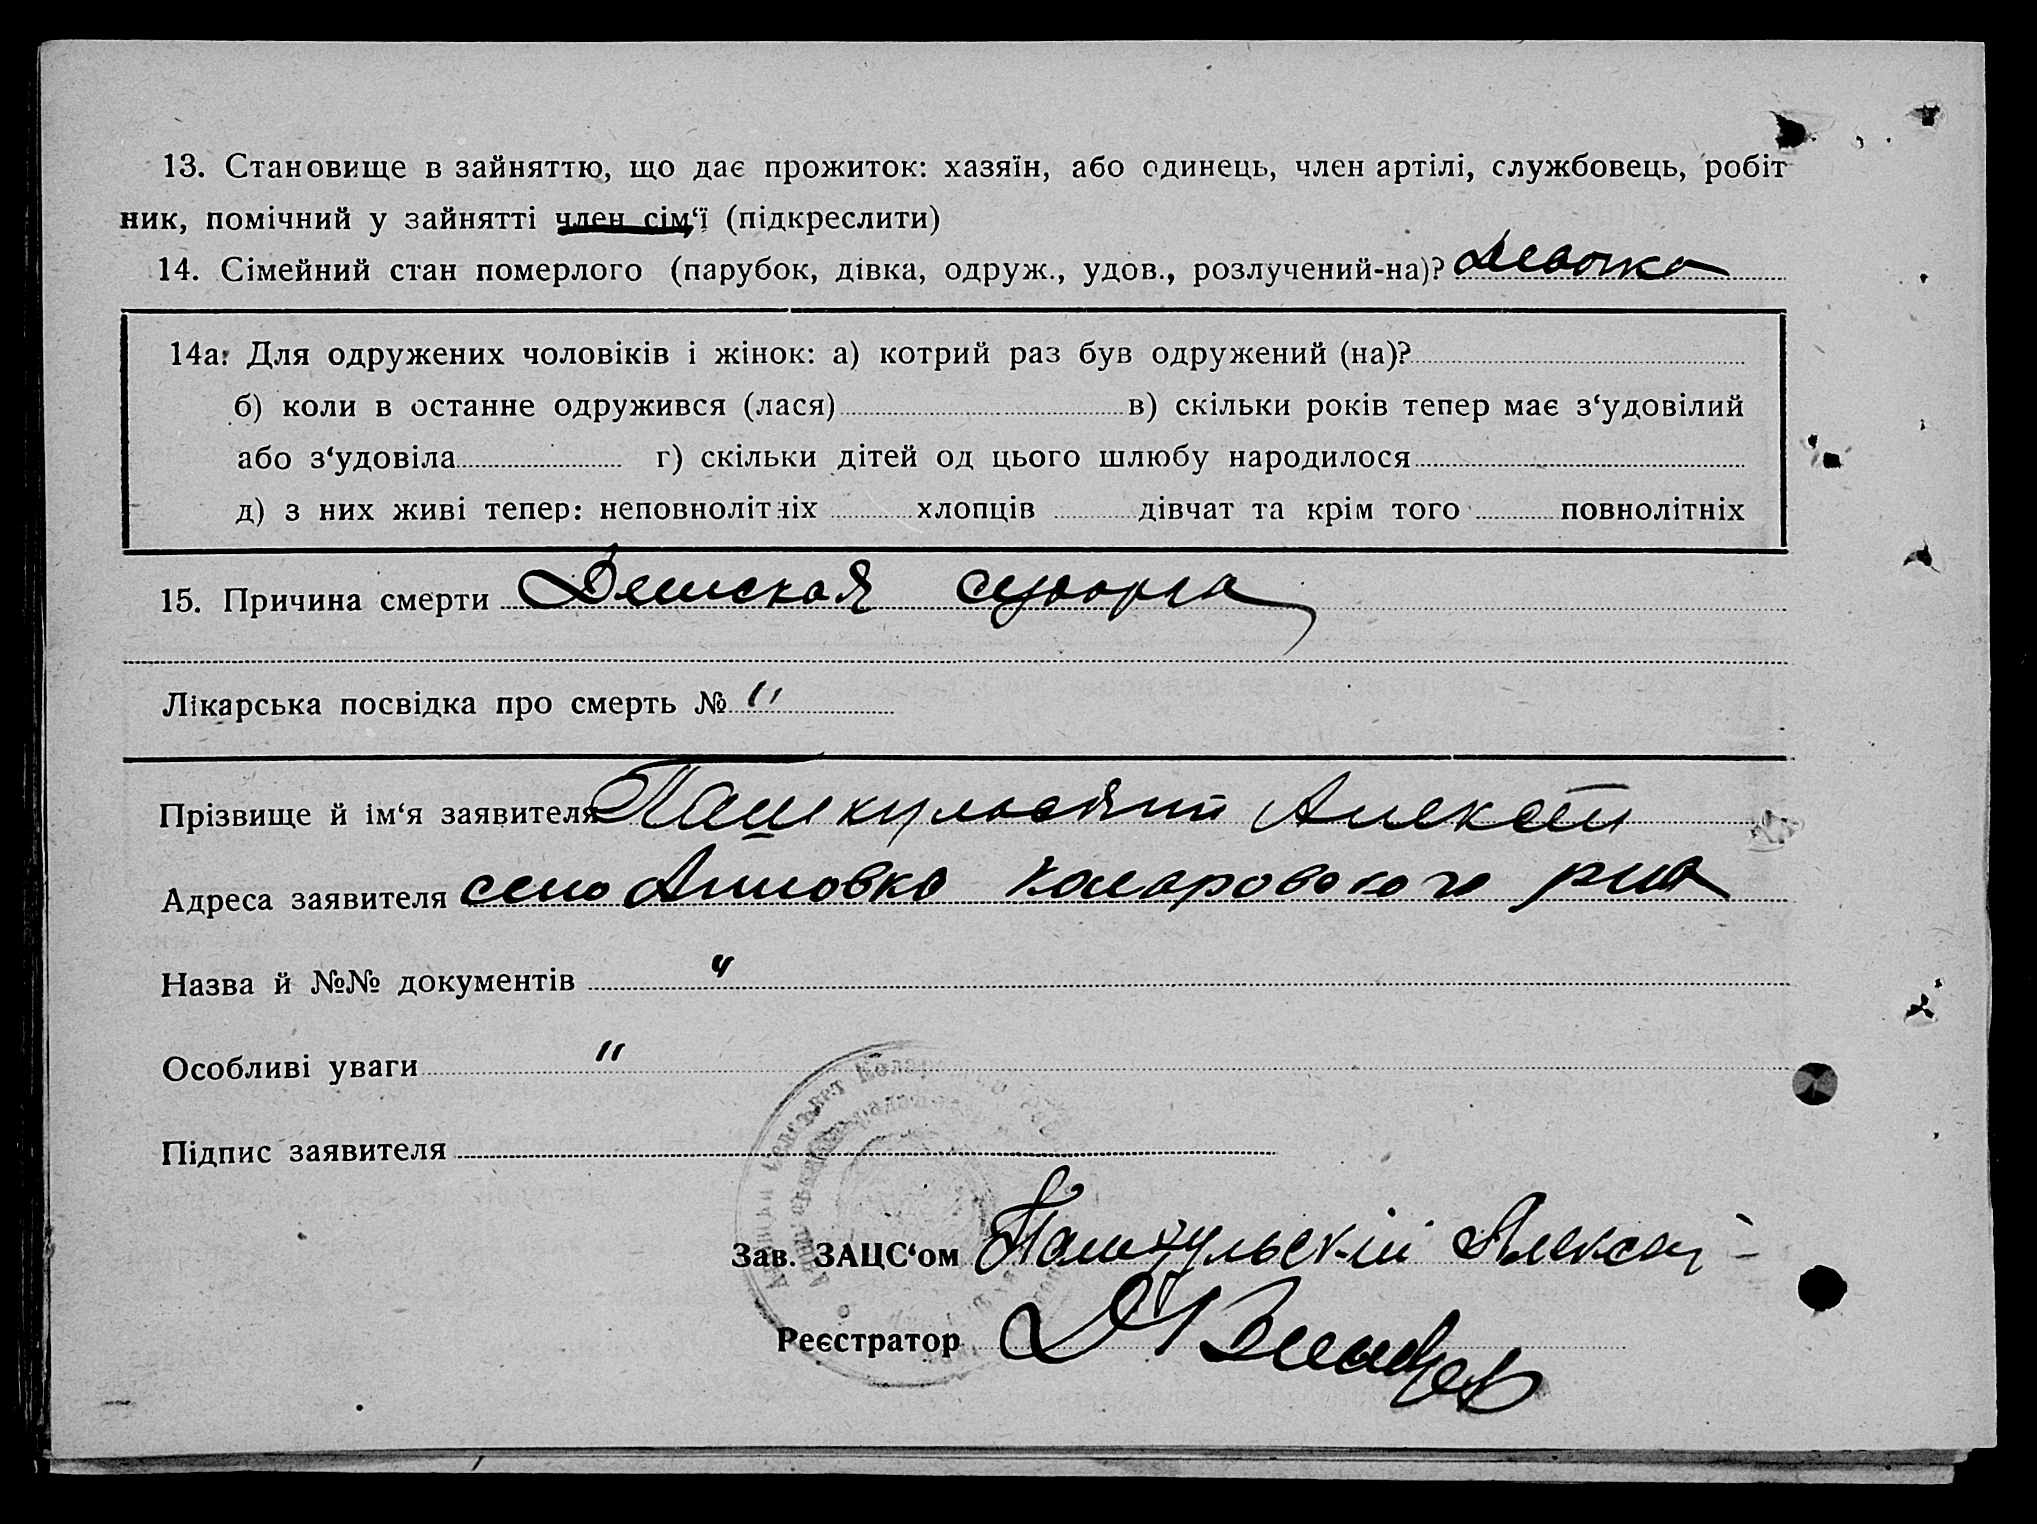 13. Становище в зайняттю, що дає прожиток: хазяїн, або одинець, член артілі, службовець, робіт
ник, помічний у зайнятті член сім‘ї (підкреслити)
14. Сімейний стан померлого (парубок, дівка, одруж., удов., розлучений-на)? Девочка
14а. Для одружених чоловіків і жінок: а) котрий раз був одружений (на)?
б) коли в останне одружився (лася) в) скільки років тепер має з‘удовілий
або з‘удовіла г) скільки дітей од цього шлюбу народилося
д) з них живі тепер: неповнолітніх хлопців дівчат та крім того повнолітніх
15. Причина смерти Детская
Лікарська посвідка про смерть № "
Прізвище й ім‘я заявителя Пашкульский Алексей
Адреса заявителя село Анновка Коларовского р-на
Назва й №№ документів "
Особливі уваги "
Підпис заявителя
Зав. ЗАЦС‘ом Пашкульскій Алексей
Реєстратор